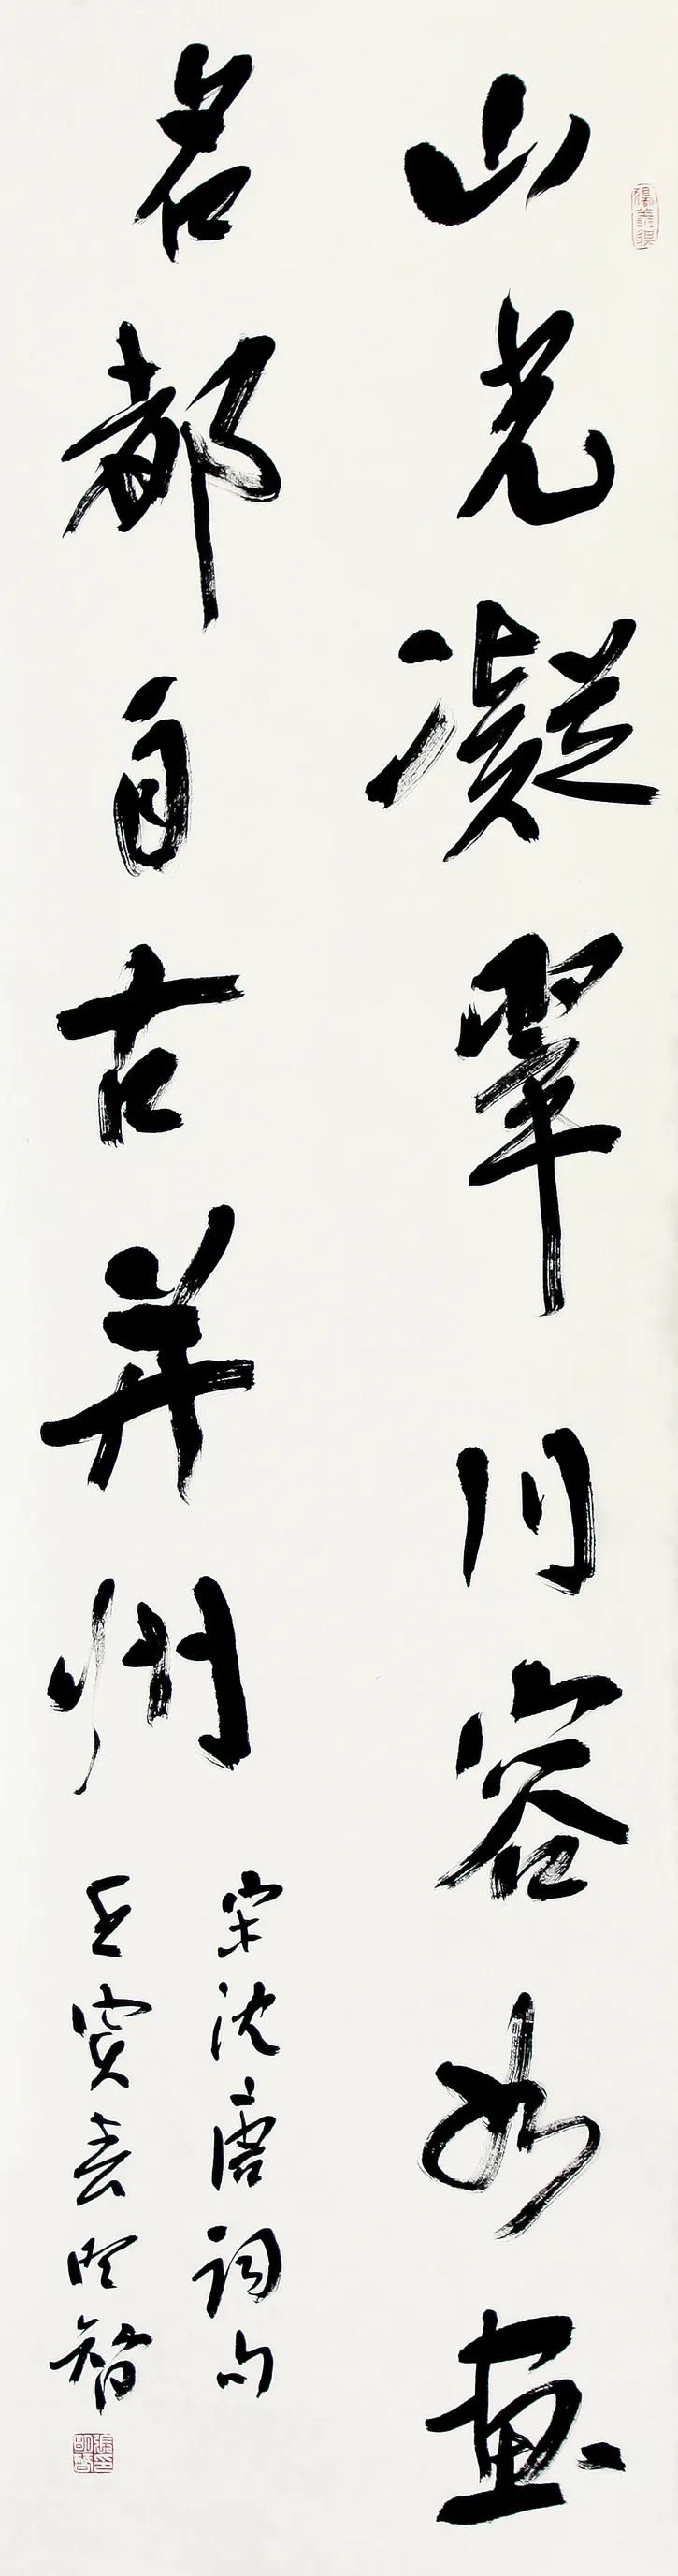 山光凝翠川容如画
名都自古并州
宋沈唐词句
壬寅春明智